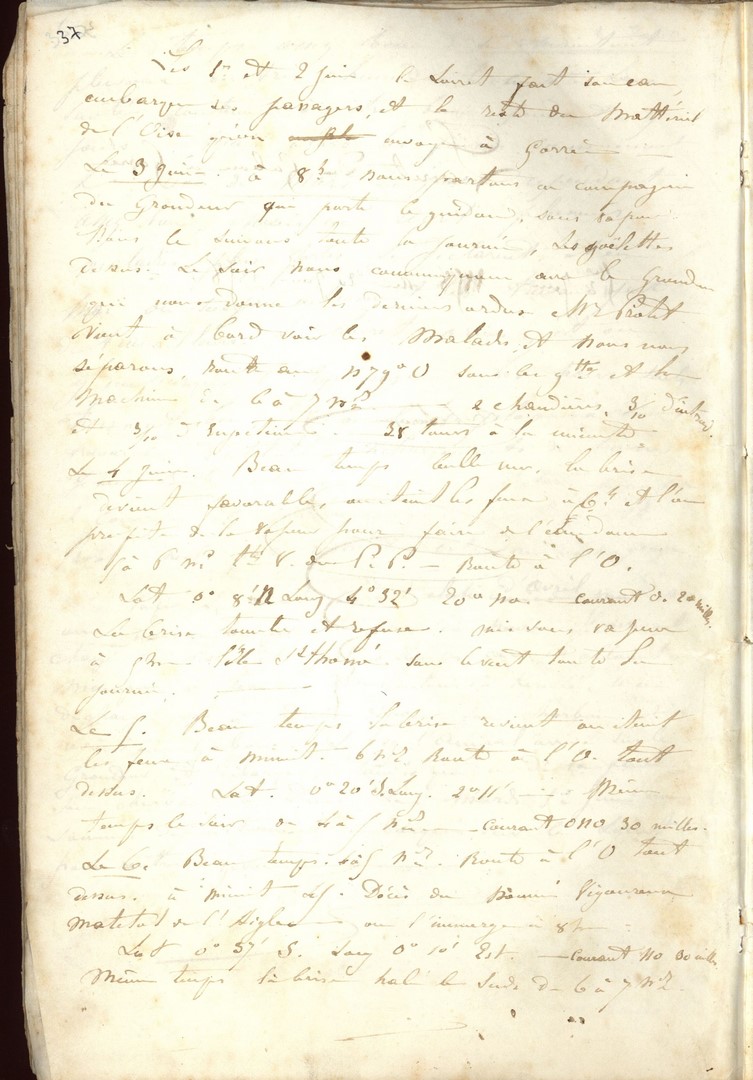 37
Les 1er et 2 juin le Loiret fait son eau,
embarque ses passagers, et le reste du Mattériel
de l'Oise qu'on envoye à Gorée
Le 3 juin. à 8h nous partons en compagnie
du Grondeur qui porte le guidon, sous vapeur
Nous le suivons toute la journée, les goëlettes
dessus. Le soir nous communiquons avec le Grondeur
qui nous donne les derniers ordres. Mr Protet
vient à bord voir les Malades, et nous nous
séparons, route au N79°O sous les gttes et la
Machine de 6 à 7 nds 2 chaudières, 3/10 d'introd.
et 3/10 38 tours à la minute.
Le 4 juin. Beau temps belle mer, la brise
devient favorable, on éteint les feux à 6h et l'on
profite de la vapeur pour faire de l'eau douce
à 6 nds P.P. - Route à l'O.
Lat 0° 8' N Long 4° 32' courant O. 20 milles.
La brise tombe et refuse. mis sous vapeur
à l'île St thomé sous le vent toute la
journée.
Le 5. Beau temps la brise revient on éteint
les feux à minuit. 6 nds Route à l'O. tout
dessus. Lat. 0° 20' S. Long. 2° 11' Même
temps le soir de 4 à 5 nds courant ONO 30 milles.
Le 6. Beau temps. 4 à 5 nds. Route à l'O tout
dessus. à minuit 45. Décès du Nommé Vigouroux
Matelot de l'Aigle on l'immerge à 8h
Lat 0° 37' S. Long 0° 10' Est. courant NO 30 milles
Même temps la brise hale le Sud de 6 à 7 nds.